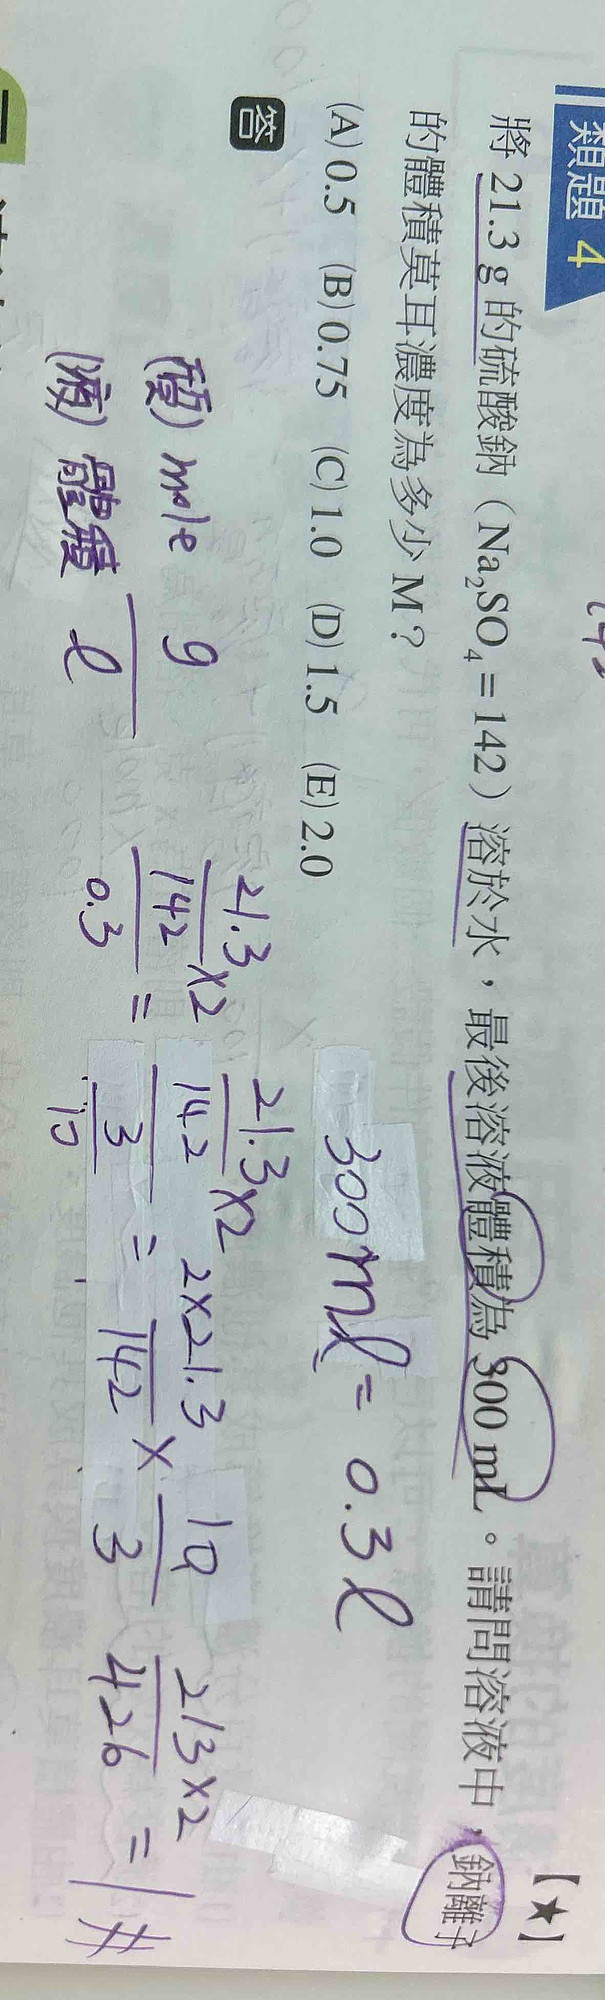 類題 4
【★】
將 21.3 g 的硫酸鈉（Na₂SO₄ = 142）溶於水，最後溶液體積為 300 mL。請問溶液中，鈉離子
的體積莫耳濃度為多少 M？
(A) 0.5 (B) 0.75 (C) 1.0 (D) 1.5 (E) 2.0
答
300ml = 0.3 l
(質) mole g
(液) 體積 l
21.3/142 ×2 / 0.3 = 21.3/142 ×2 / 3/10 = 2×21.3/142 × 10/3 213×2/426 = 1 #